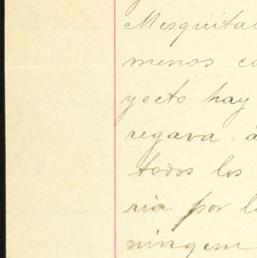 Mesquita
menos co
yecto hay
regava á
todos los
ria por l
ningem